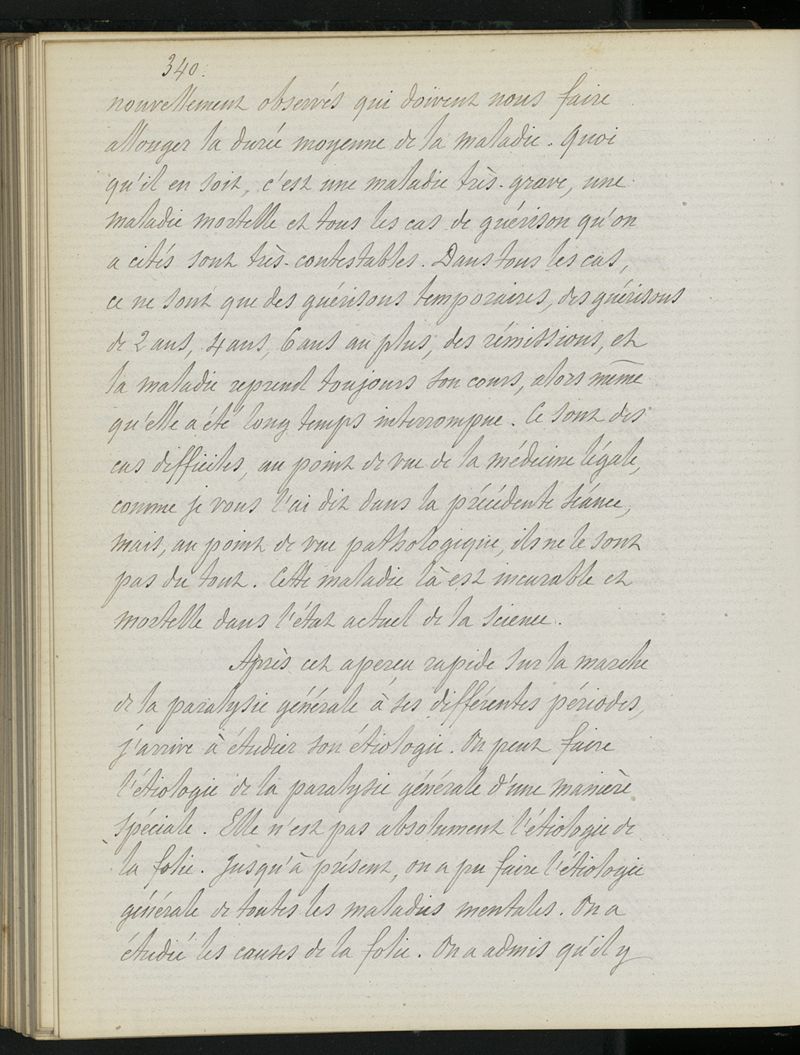 340.
nouvellement observés qui doivent nous faire
allonger la durée moyenne de la maladie. Quoi
qu'il en soit, c'est une maladie très-grave, une
maladie mortelle et tous les cas de guérison qu'on
a cités sont très-contestables. Dans tous les cas,
ce ne sont que des guérisons temporaires, des guérisons
de 2 ans, 4 ans, 6 ans au plus, des rémissions, et
la maladie reprend toujours son cours, alors même
qu'elle a été long temps interrompue. Ce sont des
cas difficiles, au point de vue de la médecine légale,
comme je vous l'ai dit dans la précédente séance,
mais, au point de vue pathologique, ils ne le sont
pas du tout. Cette maladie là est incurable et
mortelle dans l'état actuel de la science.
Après cet aperçu rapide sur la marche
de la paralysie générale à ses différentes périodes,
j'arrive à étudier son étiologie. On peut faire
l'étiologie de la paralysie générale d'une manière
spéciale. Elle n'est pas absolument l'étiologie de
la folie. Jusqu'à présent, on a pu faire l'étiologie
générale de toutes les maladies mentales. On a
étudié les causes de la folie. On a admis qu'il y